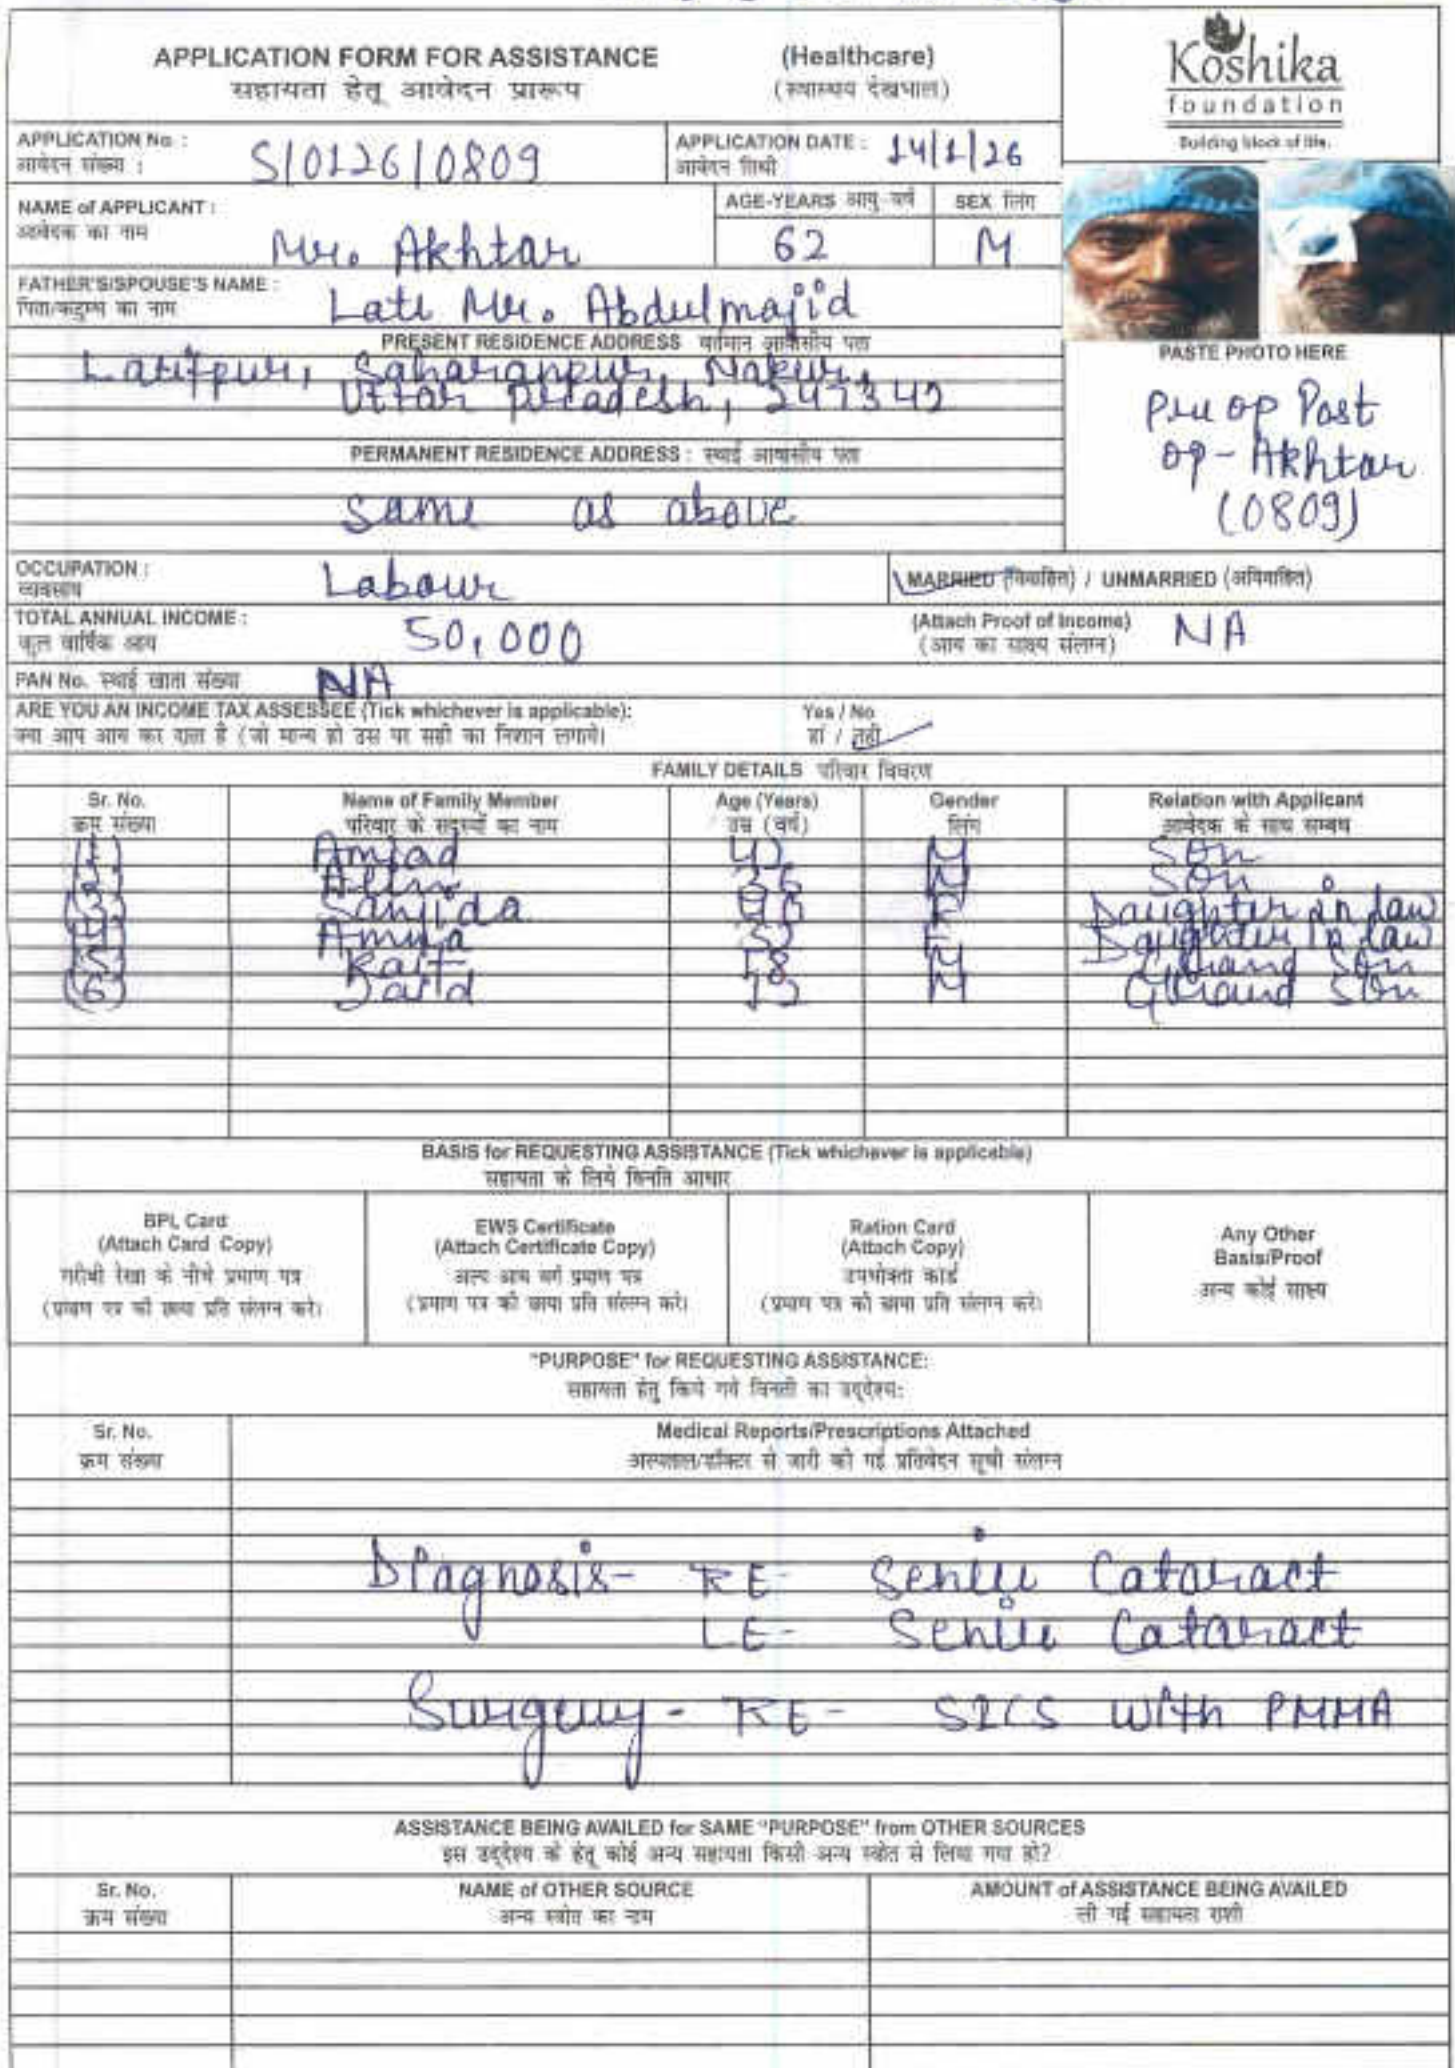 APPLICATION FORM FOR ASSISTANCE (Healthcare)
सहायता हेतू आवेदन प्रारूप (स्वास्थ्य देखभाल)
Koshika
foundation
Building block of life.
APPLICATION No :
आवेदन संख्या : S/0126/0809
APPLICATION DATE : 14/1/26
आवेदन तिथी
NAME of APPLICANT :
आवेदक का नाम Mr. Akhtar
AGE-YEARS आयु-वर्ष 62
SEX लिंग M
FATHER'S/SPOUSE'S NAME :
पिता/कटुम्ब का नाम Late Mr. Abdulmajid
PRESENT RESIDENCE ADDRESS वर्तमान आवासीय पता
Latifpur, Saharanpur, Nakur,
Uttar Pradesh, 247342
PERMANENT RESIDENCE ADDRESS : स्थाई आवासीय पता
Same as above
PASTE PHOTO HERE
Pre op Post
op - Akhtar
(0809)
OCCUPATION :
व्यवसाय Labour
MARRIED (विवाहित) / UNMARRIED (अविवाहित)
TOTAL ANNUAL INCOME :
कुल वार्षिक आय 50,000
(Attach Proof of Income) NA
(आय का साक्ष्य संलग्न)
PAN No. स्थाई खाता संख्या NA
ARE YOU AN INCOME TAX ASSESSEE (Tick whichever is applicable): Yes / No
क्या आप आय कर दाता है (जो मान्य हो उस पर सही का निशान लगाये) हां / नही
FAMILY DETAILS परिवार विवरण
Sr. No. Name of Family Member Age (Years) Gender Relation with Applicant
क्रम संख्या परिवार के सदस्यों का नाम उम्र (वर्ष) लिंग आवेदक के साथ सम्बंध
(1) Amjad 42 M Son
(2) M Son
(3) Sanjida F Daughter in law
(4) F Daughter in law
(5) 18 M Grand Son
(6) M Grand Son
BASIS for REQUESTING ASSISTANCE (Tick whichever is applicable)
सहायता के लिये विनति आधार
BPL Card
(Attach Card Copy)
गरीबी रेखा के नीचे प्रमाण पत्र
(प्रमाण पत्र की छाया प्रति संलग्न करे)
EWS Certificate
(Attach Certificate Copy)
अल्प आय वर्ग प्रमाण पत्र
(प्रमाण पत्र की छाया प्रति संलग्न करे)
Ration Card
(Attach Copy)
उपभोक्ता कार्ड
(प्रमाण पत्र की छाया प्रति संलग्न करे)
Any Other
Basis/Proof
अन्य कोई साक्ष्य
"PURPOSE" for REQUESTING ASSISTANCE:
सहायता हेतु किये गये विनती का उद्देश्य:
Sr. No. Medical Reports/Prescriptions Attached
क्रम संख्या अस्पताल/डॉक्टर से जारी की गई प्रतिवेदन सूची संलग्न
Diagnosis - RE - Senile Cataract
LE - Senile Cataract
Surgery - RE - SICS with PMMA
ASSISTANCE BEING AVAILED for SAME "PURPOSE" from OTHER SOURCES
इस उद्देश्य के हेतू कोई अन्य सहायता किसी अन्य स्त्रोत से लिया गया हो?
Sr. No. NAME of OTHER SOURCE AMOUNT of ASSISTANCE BEING AVAILED
क्रम संख्या अन्य स्त्रोत का नाम ली गई सहायता राशी